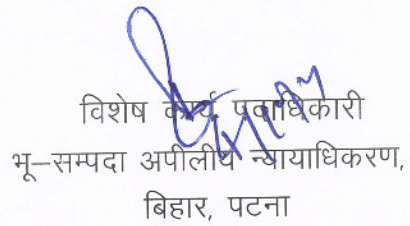 विशेष कार्य पदाधिकारी
भू-सम्पदा अपीलीय न्यायाधिकरण,
बिहार, पटना